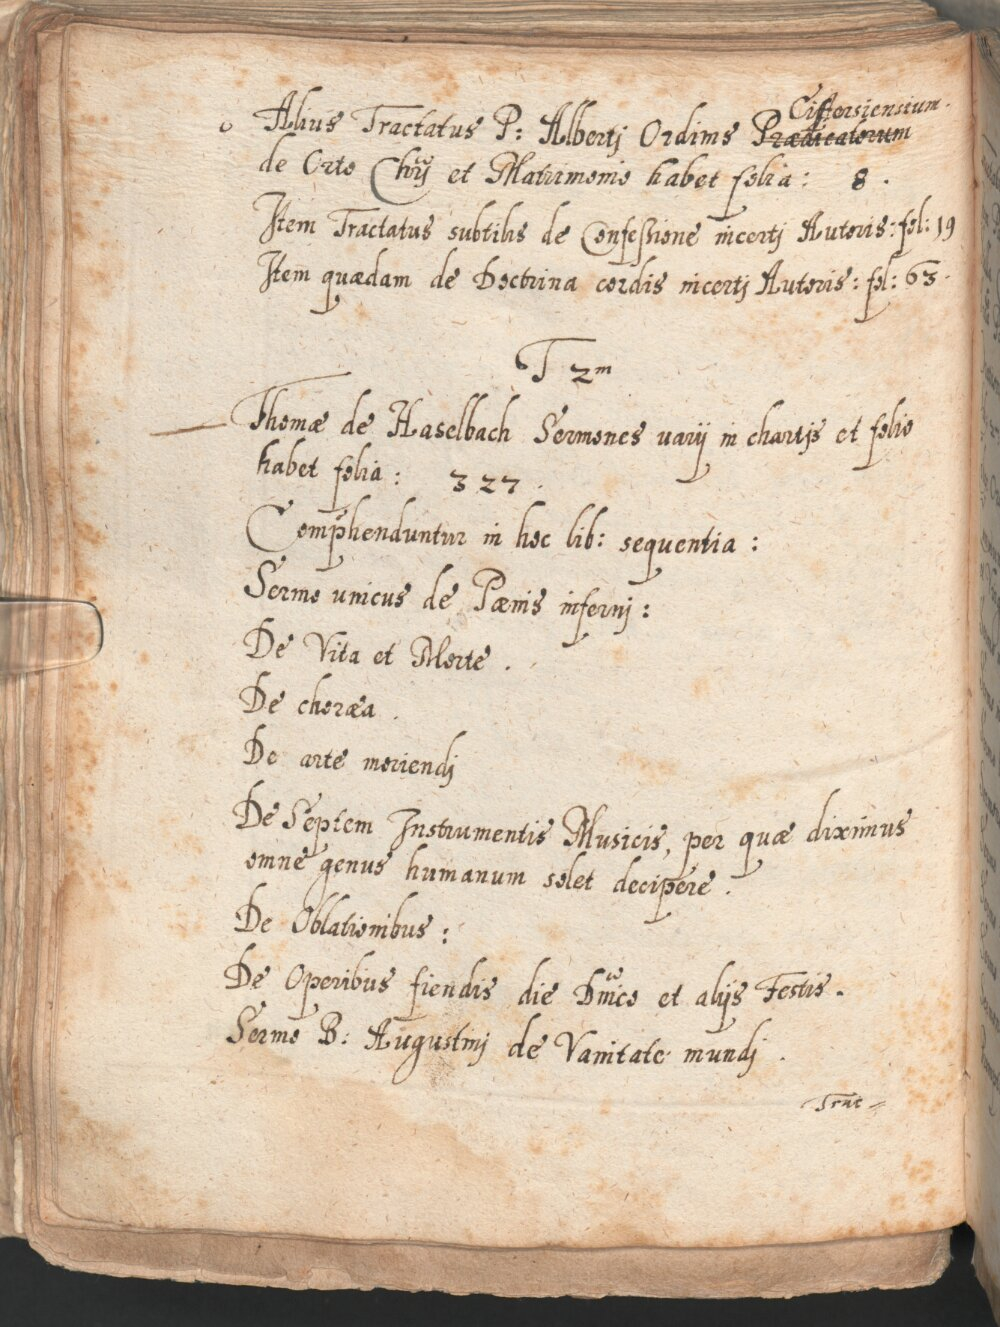 Cistersiensium.
o Alius Tractatus P: Albertj Ordinis Prædicatorum
de Orto Chrij et Matrimonio habet folia: 8.
Item Tractatus subtilis de Confeßione incertj Autoris: fol: 19
Item quædam de Doctrina cordis incertj Autoris: fol: 63.
T 2m
Thomæ de Haselbach Sermones varij in chartis et folio
habet folia: 327.
Comphenduntur in hoc lib: sequentia:
Sermo unicus de Pænis infernj:
De Vita et Morte.
De choræa.
De arte moriendj
De Septem Instrumentis Musicis, per quæ diximus
omne genus humanum solet decipere.
De Oblationibus:
De Operibus fiendis die Dnico et alijs Festis.
Sermo B: Augustinj de Vanitate mundj.